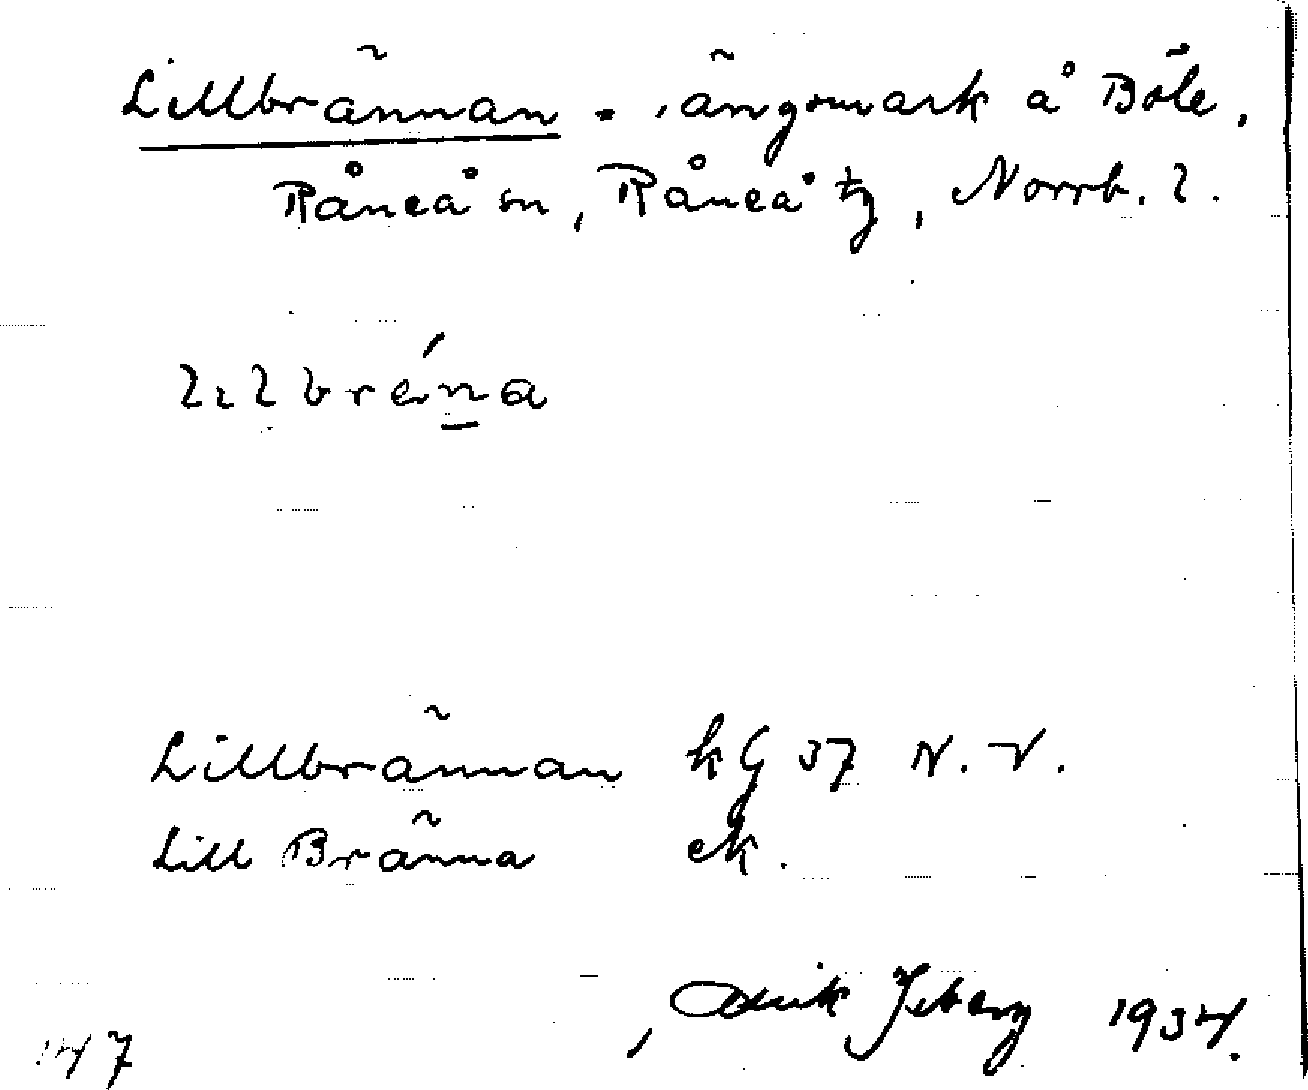 Lillbrännan - ängsmark å Böle,
Råneå sn, Råneå tg, Norrb. l.
lılbréna
Lillbrännan kG 37 N. V.
Lill Bränna ek.
1934.
147